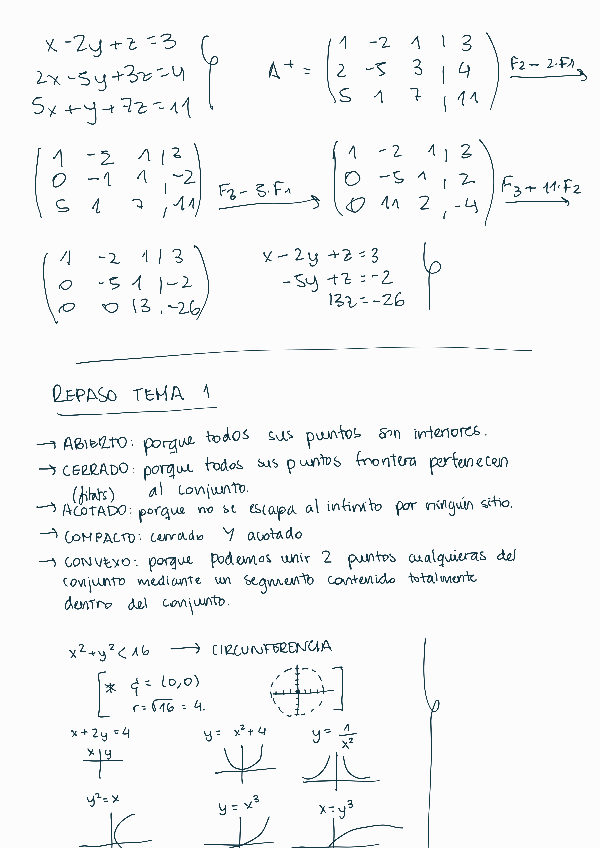 x - 2y + z = 3
2x - 5y + 3z = 4
5x + y + 7z = 11
A⁺ = ( 1 -2 1 | 3
2 -5 3 | 4
5 1 7 | 11 ) F2 - 2·F1
( 1 -2 1 | 3
0 -1 1 | -2
5 1 7 | 11 ) F3 - 5·F1
( 1 -2 1 | 3
0 -5 1 | 2
0 11 2 | -4 ) F3 + 11·F2
( 1 -2 1 | 3
0 -5 1 | -2
0 0 13 | -26 )
x - 2y + z = 3
-5y + z = -2
13z = -26
REPASO TEMA 1
→ ABIERTO: porque todos sus puntos son interiores.
→ CERRADO: porque todos sus puntos frontera pertenecen
(fitats) al conjunto.
→ ACOTADO: porque no se escapa al infinito por ningún sitio.
→ COMPACTO: cerrado Y acotado
→ CONVEXO: porque podemos unir 2 puntos cualquieras del
conjunto mediante un segmento contenido totalmente
dentro del conjunto.
x² + y² < 16 → CIRCUNFERENCIA
[ * = (0,0)
r = √16 = 4. ]
x + 2y = 4
x | y
y = x² + 4
y = 1/x²
y² = x
y = x³
x = y³